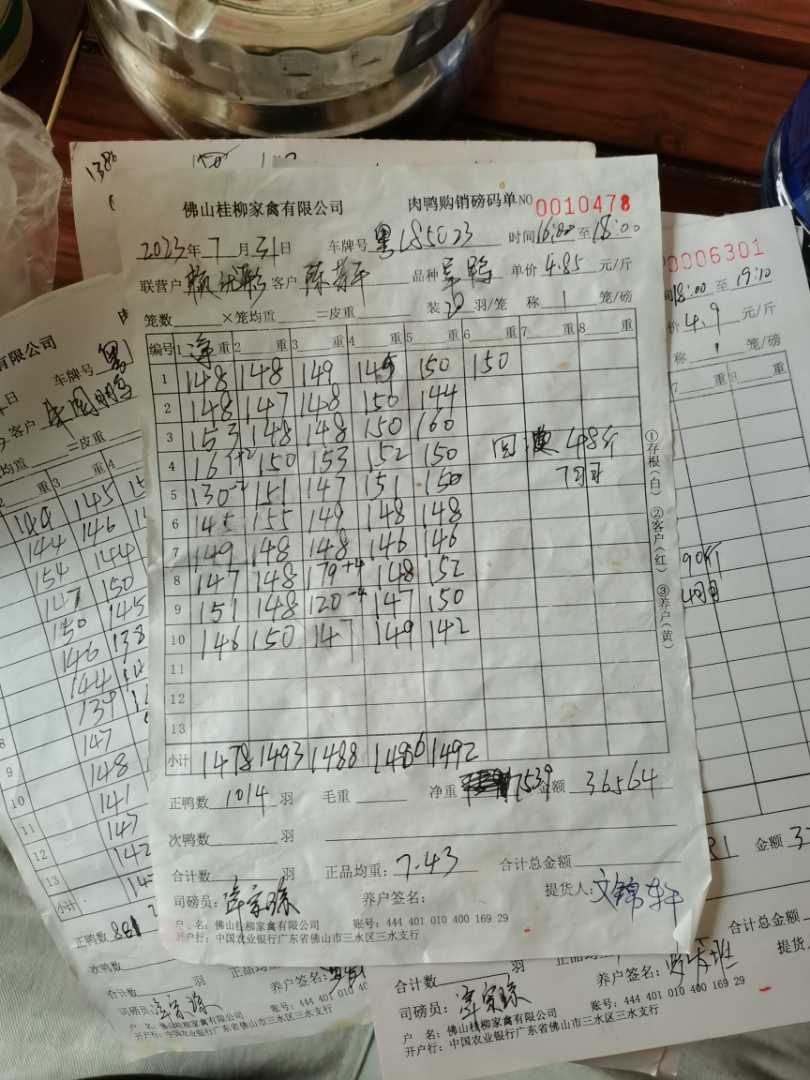 138
佛山桂柳家禽有限公司 肉鸭购销磅码单 NO 0010478
2023年7月31日 车牌号 粤L85023 时间16:00至18:00
联营户 客户 品种 单价4.85元/斤
笼数 ×笼均重 =皮重 装20羽/笼 称1笼/磅
编号 1净重 2重 3重 4重 5重 6重 7重 8重
1 148 148 149 145 150 150
2 148 147 148 150 144
3 153 148 148 150 160
4 161+2 150 153 152 150 回 48斤
5 130-2 151 147 151 150 7
6 145 155 149 148 148
7 149 148 148 146 146
8 147 148 179+4 148 152
9 151 148 120-4 147 150
10 146 150 147 149 142
11
12
13
小计 1478 1493 1488 1486 1492
正鸭数1014羽 毛重 净重7539 金额36564
次鸭数 羽
合计数 羽 正品均重:7.43 合计总金额
司磅员: 养户签名: 提货人:文锦轩
户 名:佛山桂柳家禽有限公司 账号:444 401 010 400 169 29
开户行:中国农业银行广东省佛山市三水区三水支行
①存根(白) ②客户(红) ③养户(黄)
有限公司
日 车牌号 粤
客户
均重 =皮重
重 3重 4
149 145
144 146
154 144
147 150
150 145
146 138
144
139
147
148
141
147
142
8
9
10
11
12
13
小计
正鸭数881
次鸭数
合计数 羽
司磅员: 养户签名:
账号:444 401 010 40
户 名:佛山桂柳家禽有限公司
开户行:中国农业银行广东省佛山市三水区三水支行
0006301
18:00至19:10
价4.9元/斤
称1笼/磅
7重 8重
90斤
金额
合计总金额
合计数 羽
提货
司磅员: 养户签名:
账号:444 401 010 400 169 29
户 名:佛山桂柳家禽有限公司
开户行:中国农业银行广东省佛山市三水区三水支行